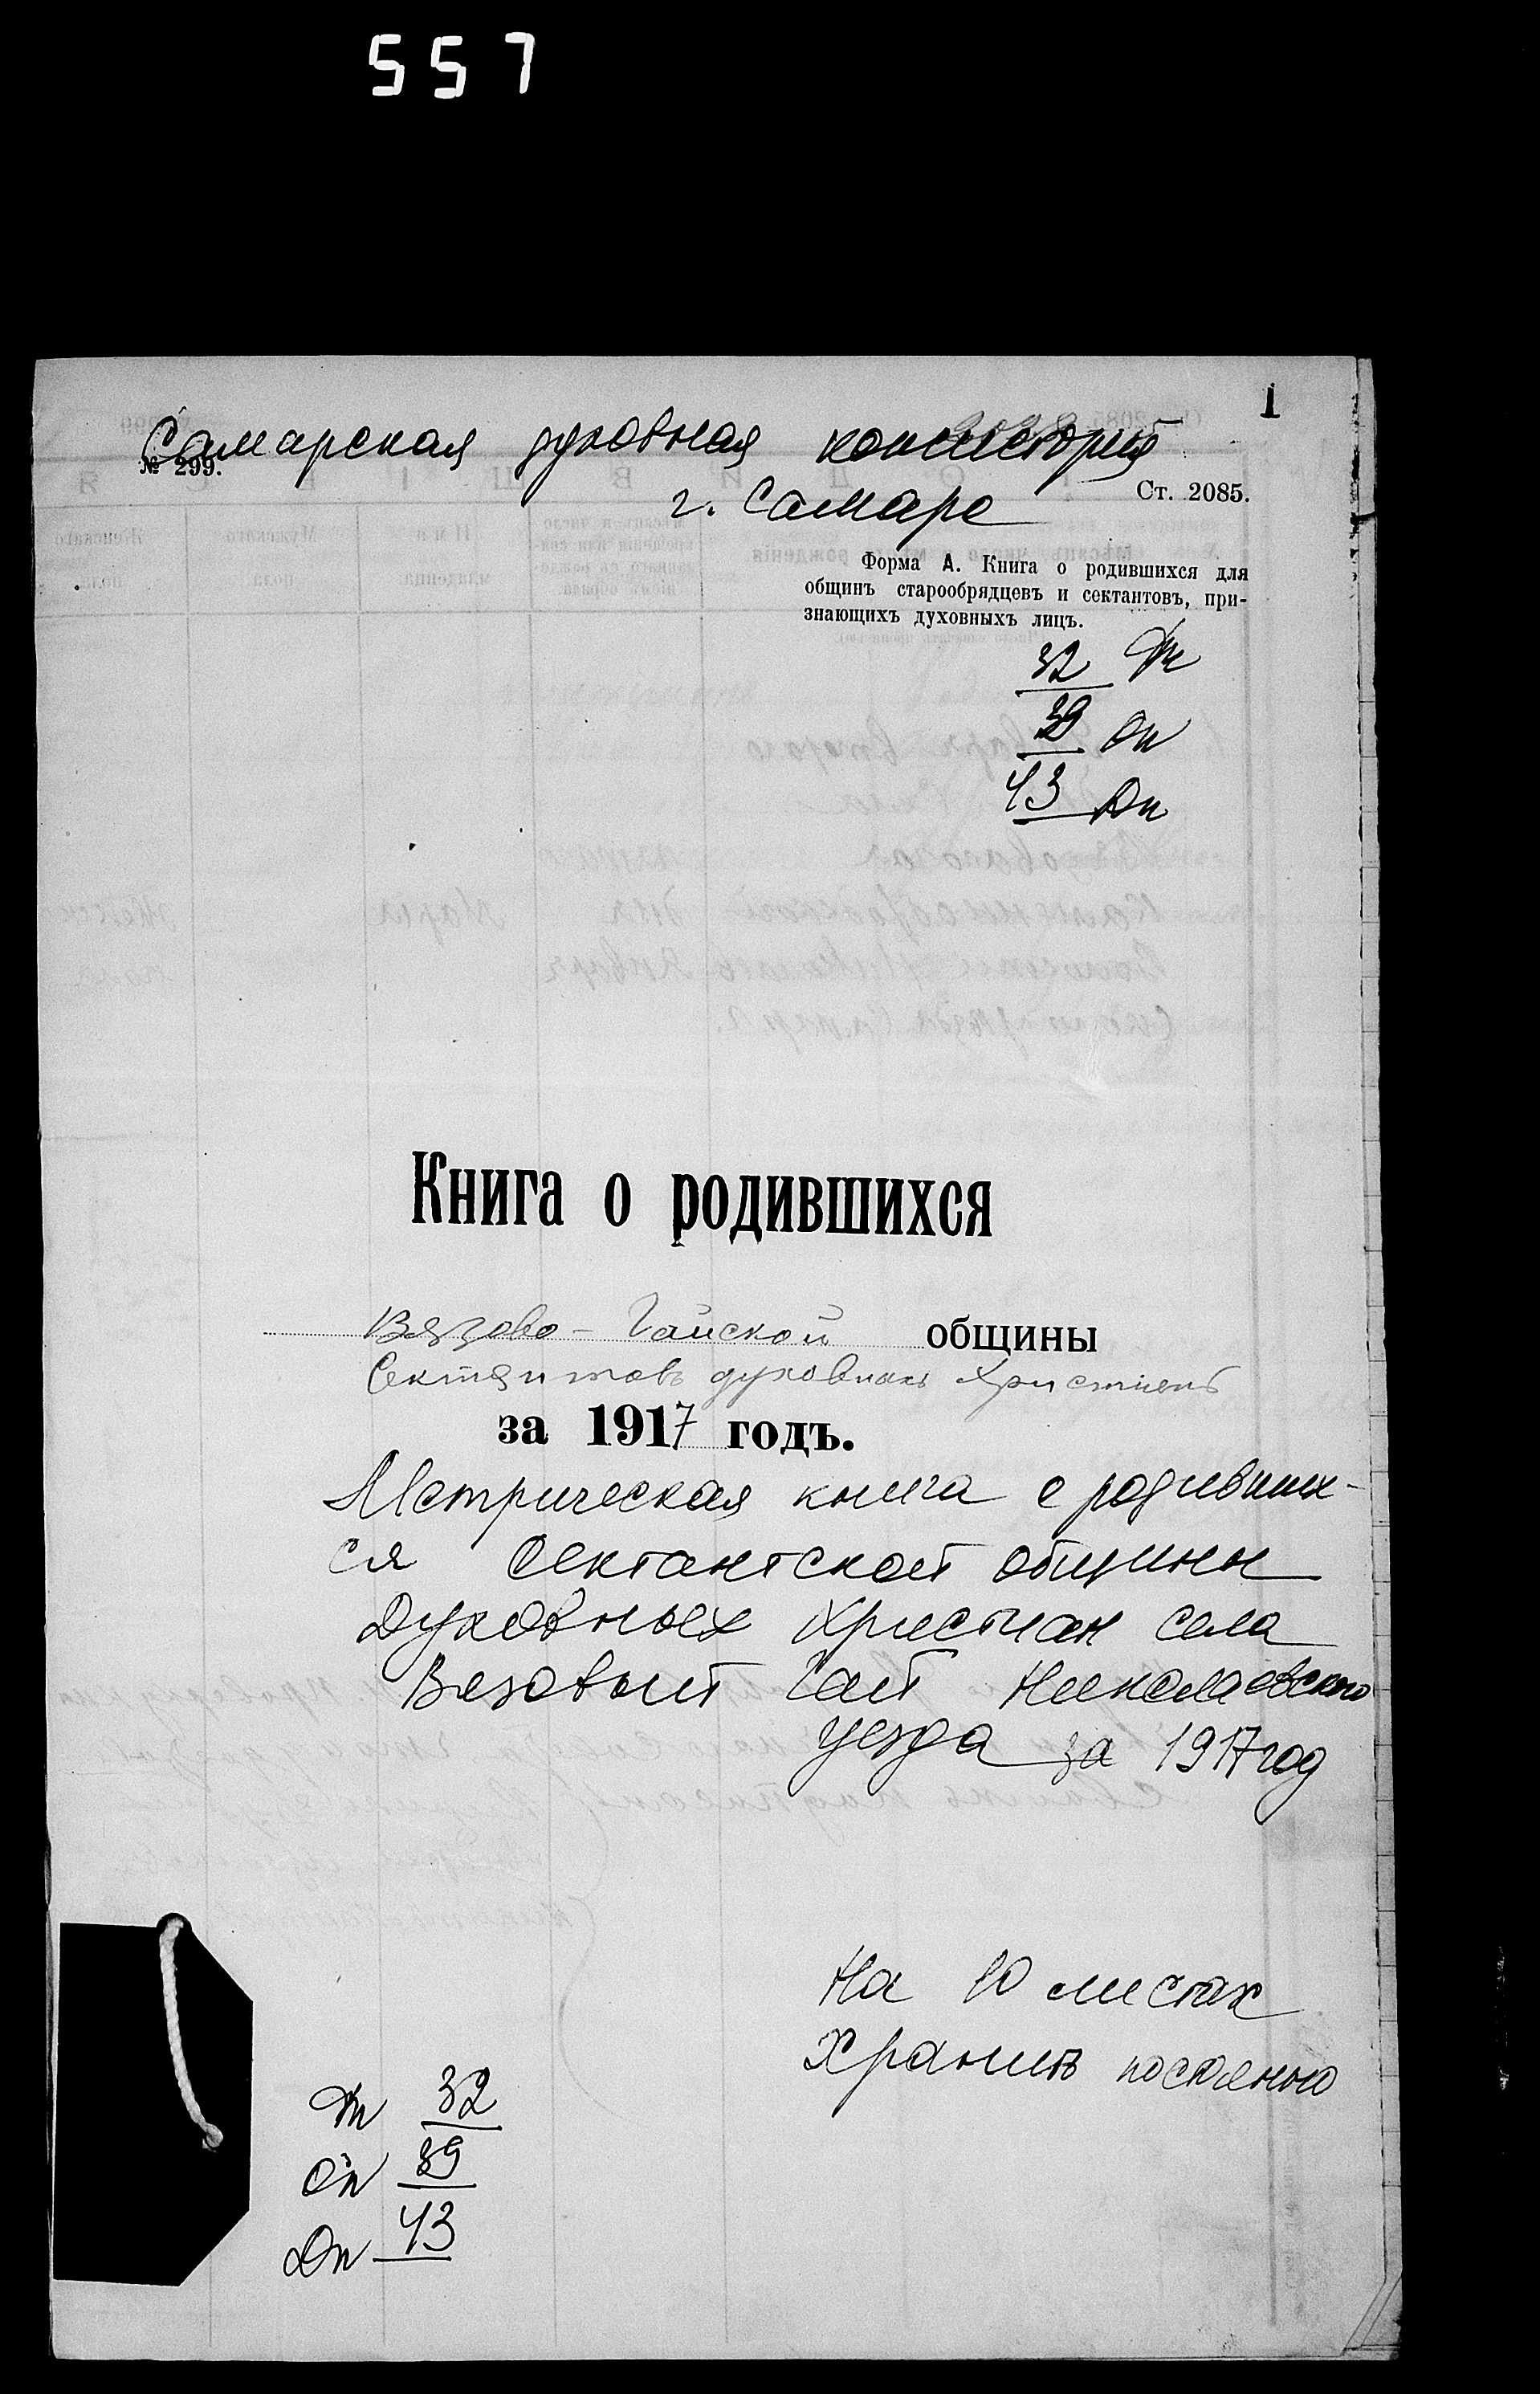 557
1
Самарская духовная консистория
№ 299.
г. Самара
Ст. 2085.
Форма А. Книга о родившихся для
общинъ старообрядцевъ и сектантовъ, при-
знающихъ духовныхъ лицъ.
32 Ф
39 Оп
43 Дп
Книга о родившихся
Вязово-Гайской общины
Сектантовъ духовныхъ христіанъ
за 1917 годъ.
Метрическая книга о родивших-
ся сектантской общины
Духовных христиан села
Вязовый Гай Николаевского
уезда за 1917 год
На 10 листах
Хранить постоянно
Ф 32
Оп 39
Дп 43